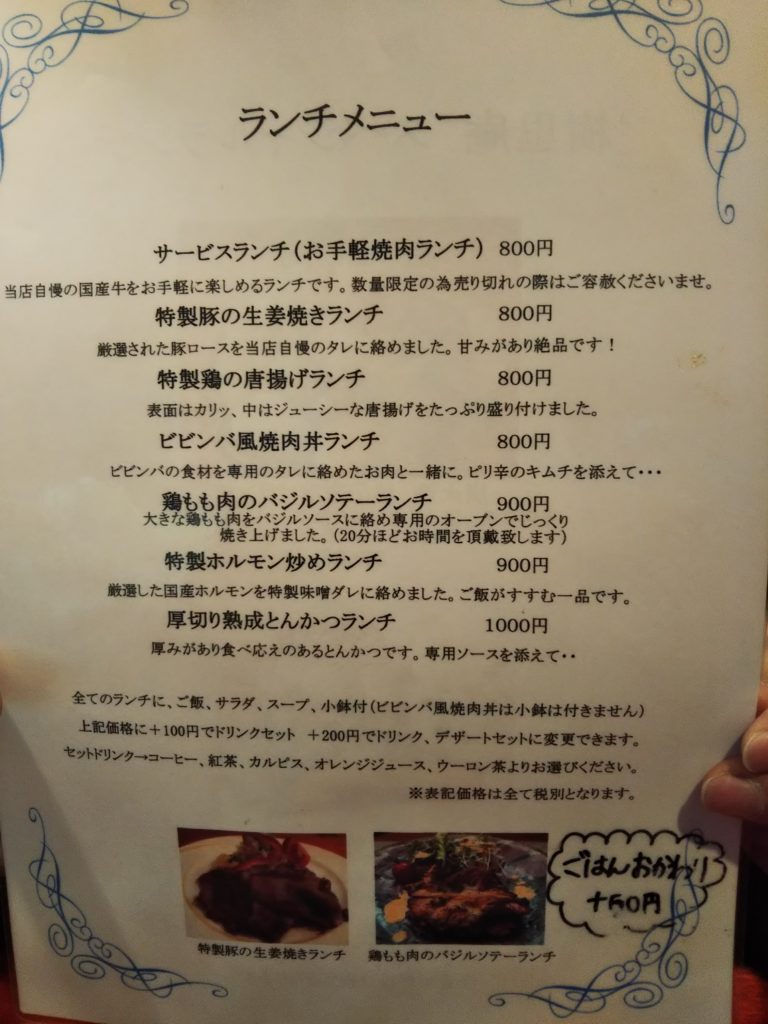 ランチメニュー
サービスランチ(お手軽焼肉ランチ) 800円
当店自慢の国産牛をお手軽に楽しめるランチです。数量限定の為売り切れの際はご容赦くださいませ。
特製豚の生姜焼きランチ 800円
厳選された豚ロースを当店自慢のタレに絡めました。甘みがあり絶品です！
特製鶏の唐揚げランチ 800円
表面はカリッ、中はジューシーな唐揚げをたっぷり盛り付けました。
ビビンバ風焼肉丼ランチ 800円
ビビンバの食材を専用のタレに絡めたお肉と一緒に。ピリ辛のキムチを添えて・・・
鶏もも肉のバジルソテーランチ 900円
大きな鶏もも肉をバジルソースに絡め専用のオーブンでじっくり
焼き上げました。(20分ほどお時間を頂戴致します)
特製ホルモン炒めランチ 900円
厳選した国産ホルモンを特製味噌ダレに絡めました。ご飯がすすむ一品です。
厚切り熟成とんかつランチ 1000円
厚みがあり食べ応えのあるとんかつです。専用ソースを添えて・・
全てのランチに、ご飯、サラダ、スープ、小鉢付(ビビンバ風焼肉丼は小鉢は付きません)
上記価格に＋100円でドリンクセット ＋200円でドリンク、デザートセットに変更できます。
セットドリンク→コーヒー、紅茶、カルピス、オレンジジュース、ウーロン茶よりお選びください。
※表記価格は全て税別となります。
ごはんおかわり
+50円
特製豚の生姜焼きランチ
鶏もも肉のバジルソテーランチ